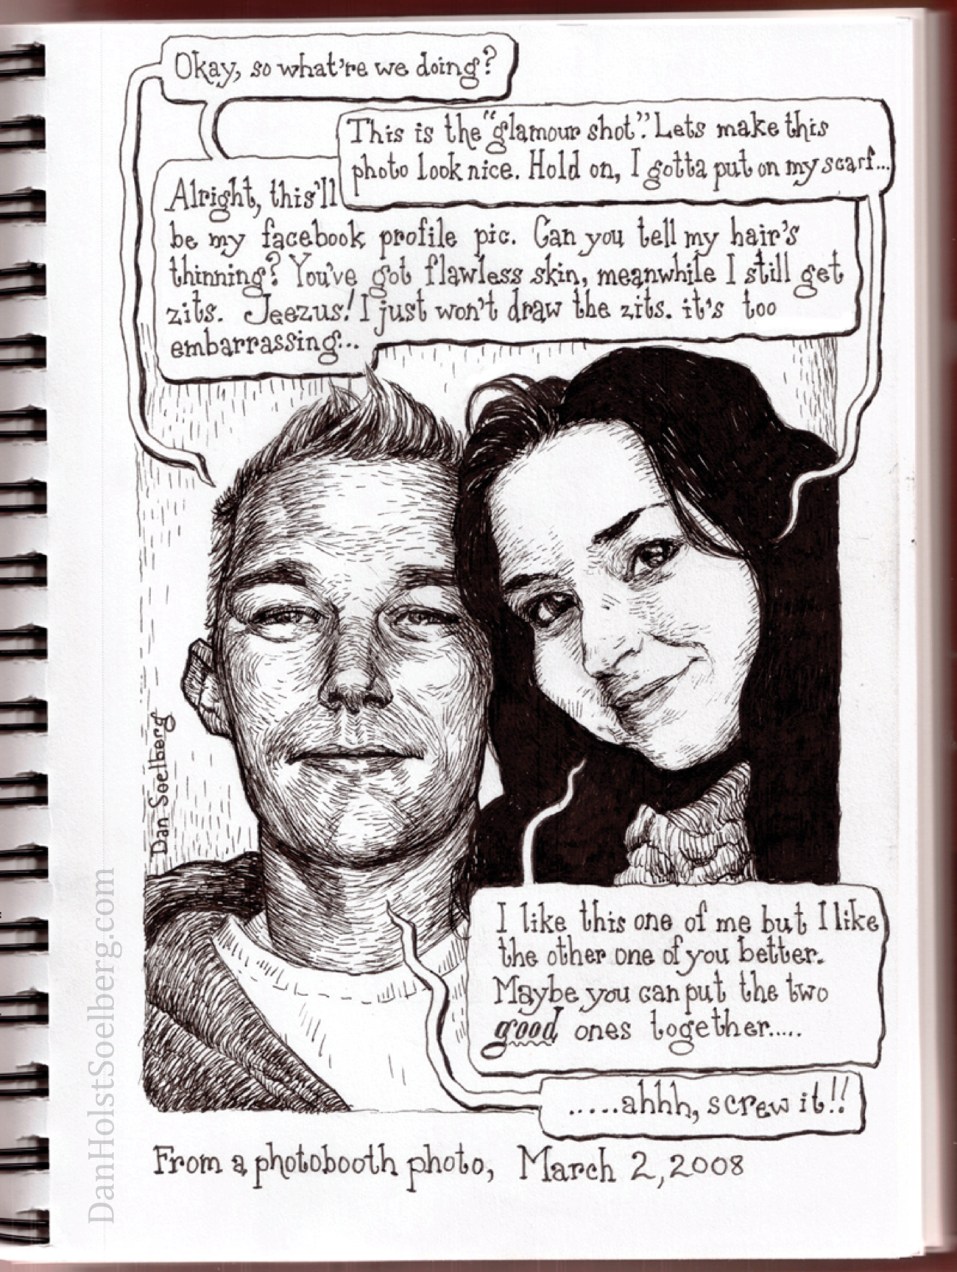 Okay, so what're we doing?
This is the "glamour shot". Lets make this
photo look nice. Hold on, I gotta put on my scarf...
Alright, this'll
be my facebook profile pic. Can you tell my hair's
thinning? You've got flawless skin, meanwhile I still get
zits. Jeezus! I just won't draw the zits. it's too
embarrassing...
I like this one of me but I like
the other one of you better.
Maybe you can put the two
good ones together.....
.....ahhh, screw it!!
Dan Soelberg
From a photobooth photo, March 2, 2008
DanHolstSoelberg.com